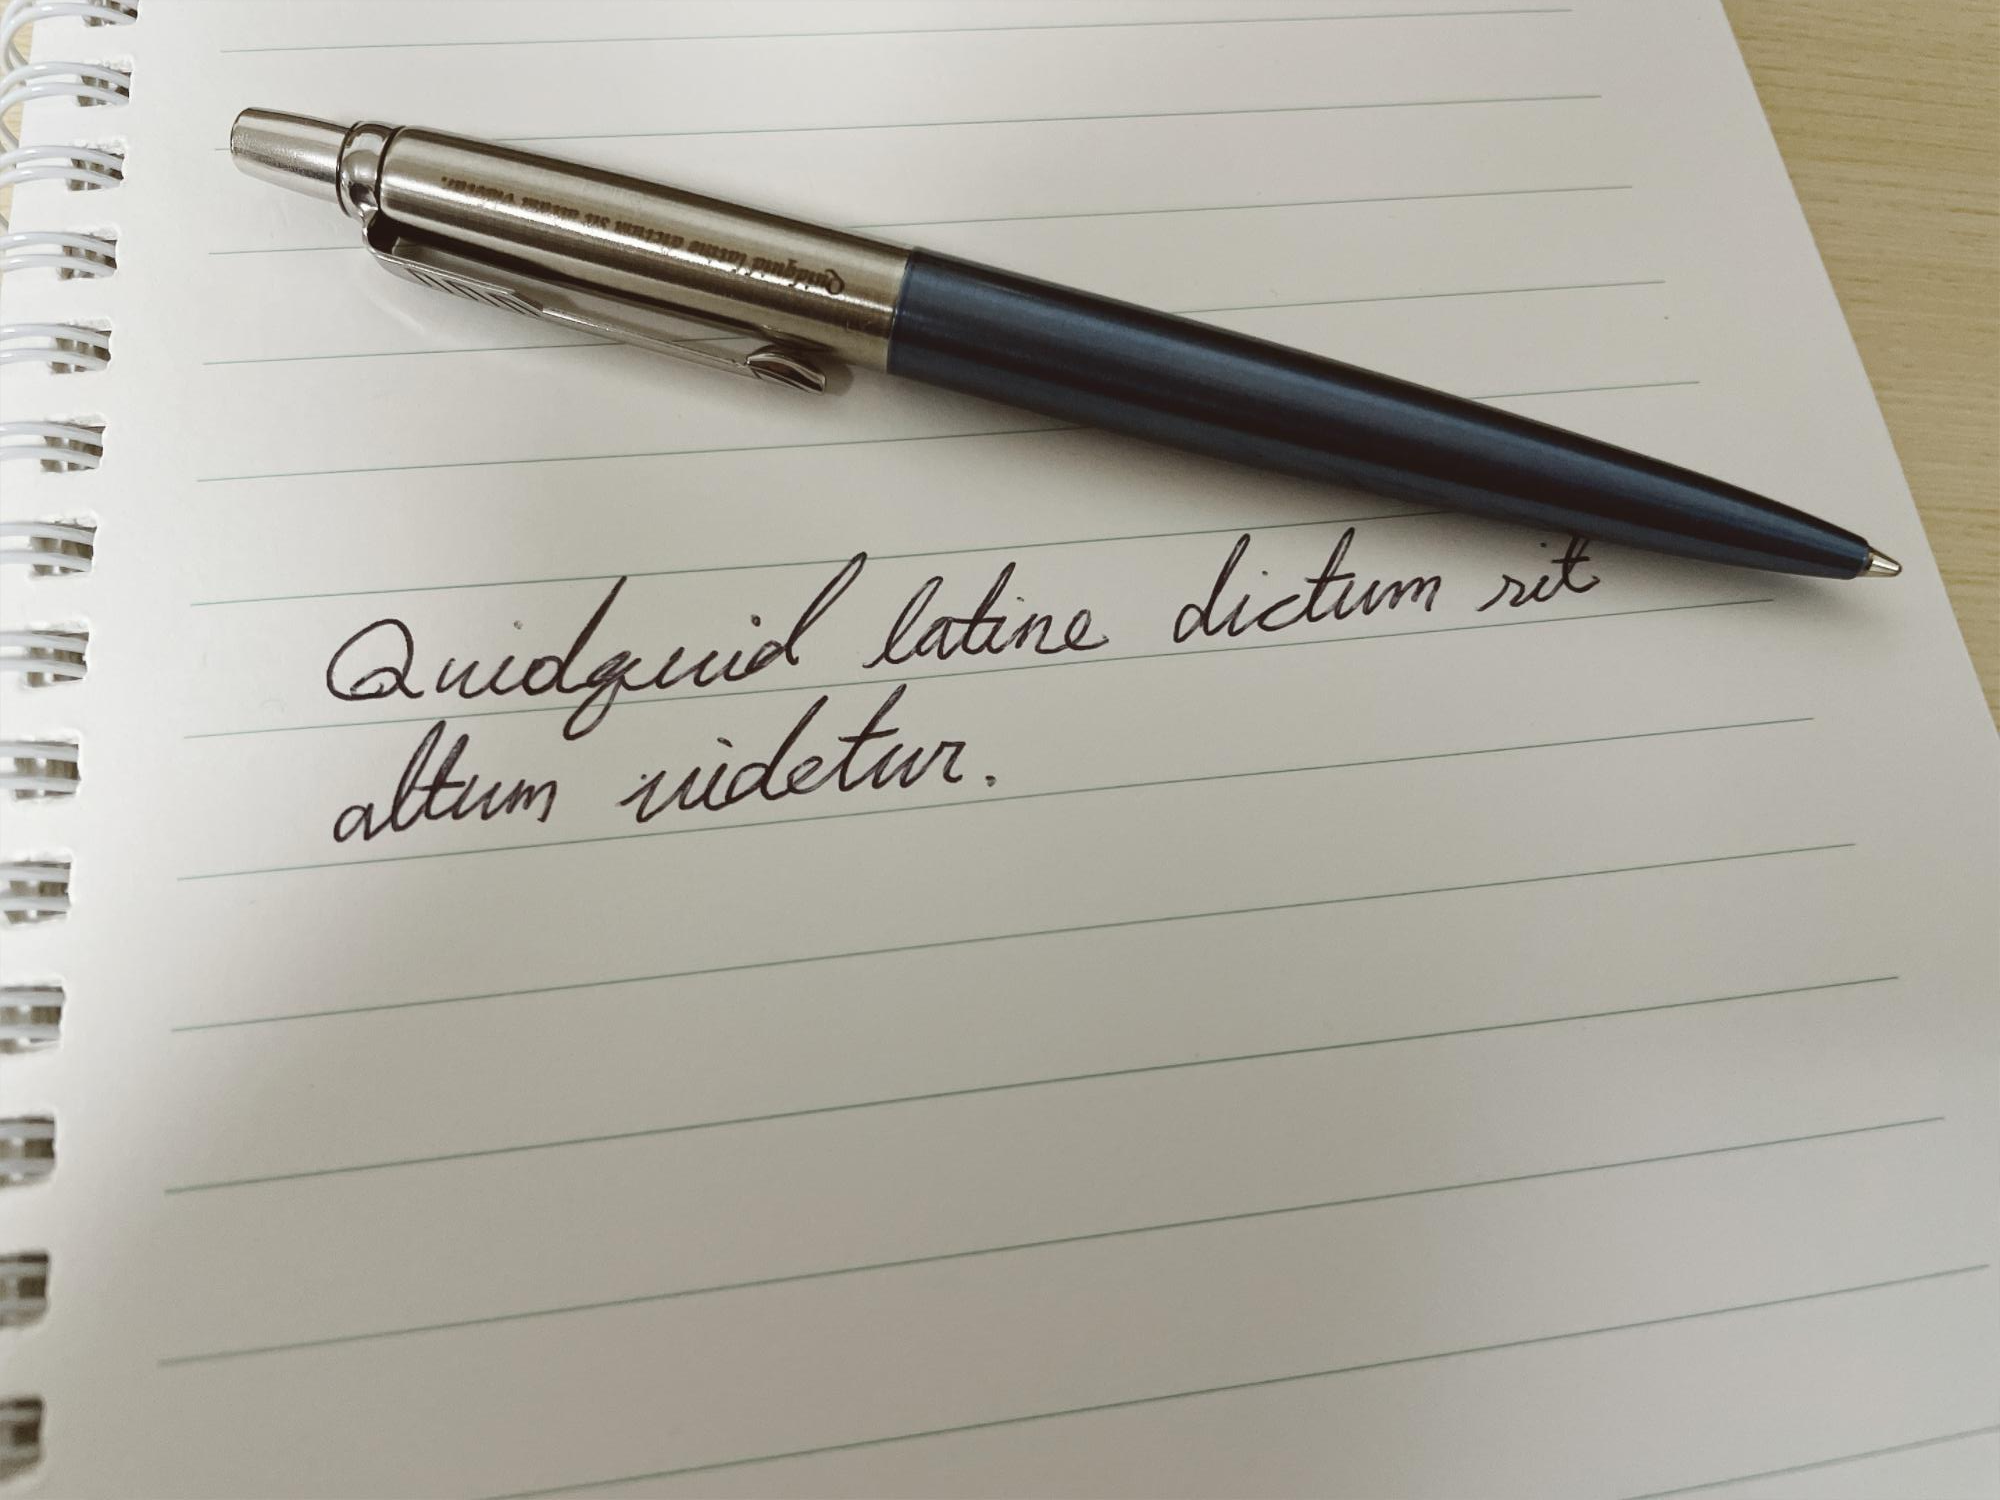 Quidquid latine dictum sit altum videtur.
Quidquid latine dictum sit
altum videtur.